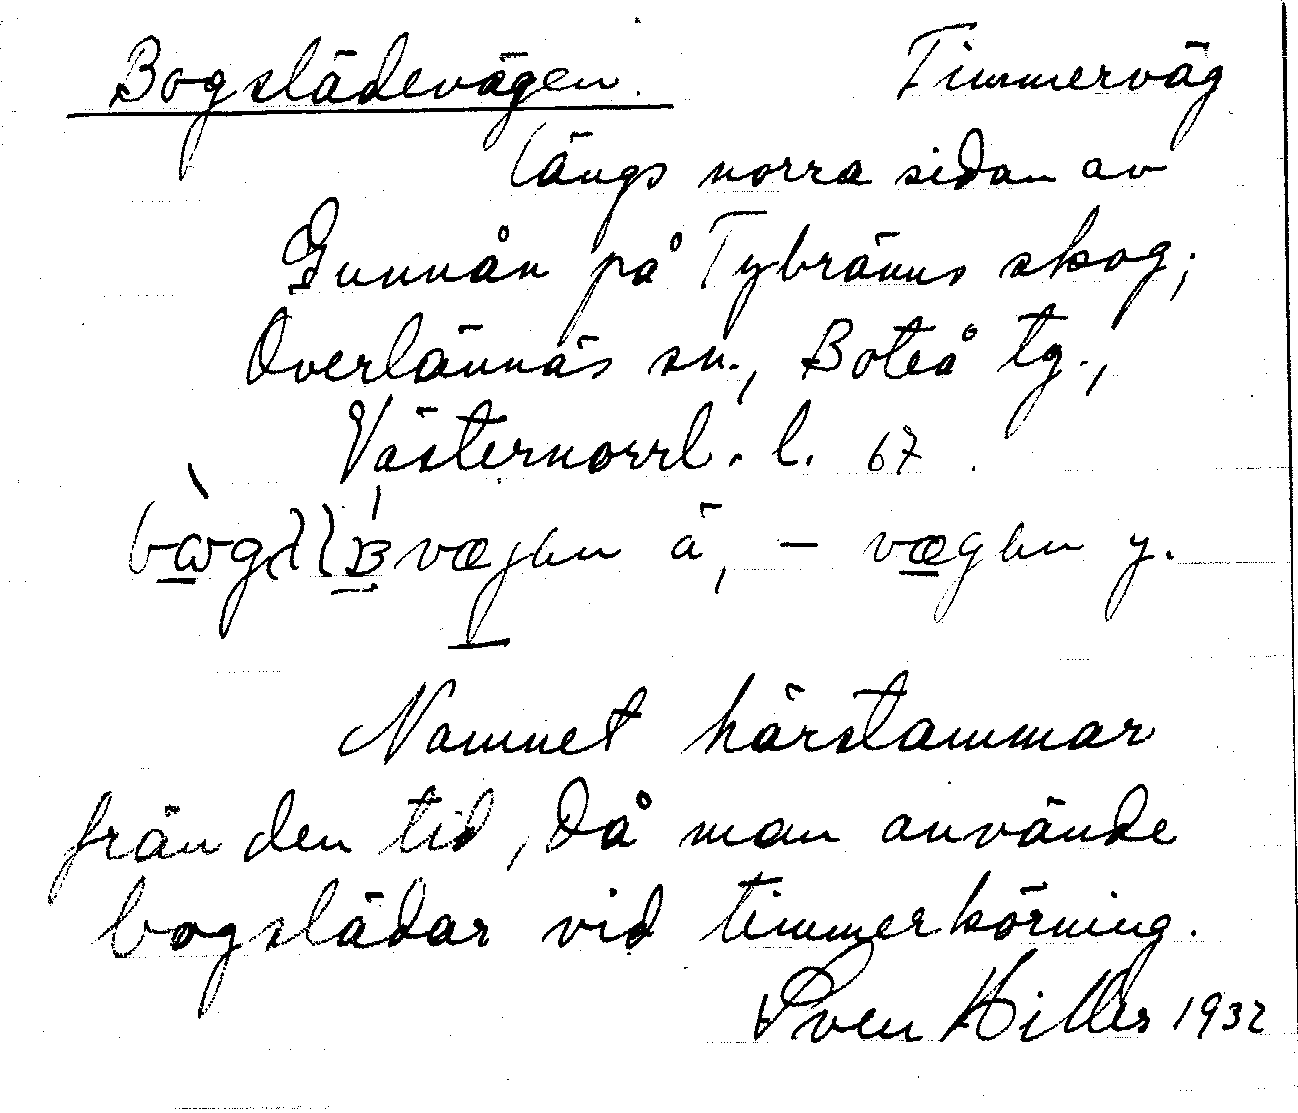 Bogslädevägen. Timmerväg
längs norra sidan av
Gunnån på Tybränns skog,
Överlännäs sn., Boteå tg.,
Västernorrl. l. 67.
ä, - y.
Namnet härstammar
från den tid, då man använde
bogslädar vid timmerkörning.
Sven Hillers 1932